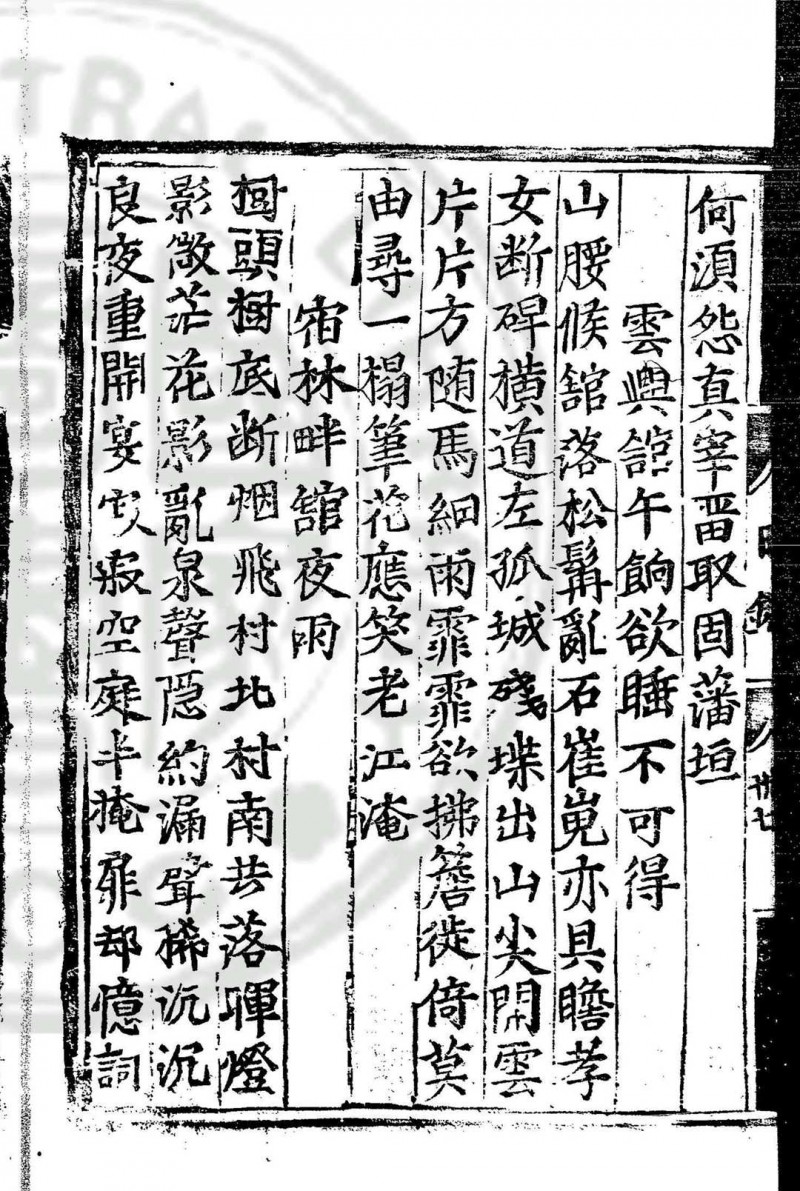 何湏怨真宰畱取固藩垣
雲興舘午餉欲睡不可得
山腰候舘落松髯亂石崔嵬亦具瞻孝
女断碑横道左孤城殘堞出山尖閒雲
片片方随馬細雨霏霏欲拂簷徙倚莫
由尋一榻筆花應笑老江淹
宿林畔舘夜雨
樹頭樹底断烟飛村北村南共落暉燈
影微茫花影亂泉聲隠約漏聲稀沉沉
良夜重開宴寂空庭半掩扉却憶詞
日錄
卄七